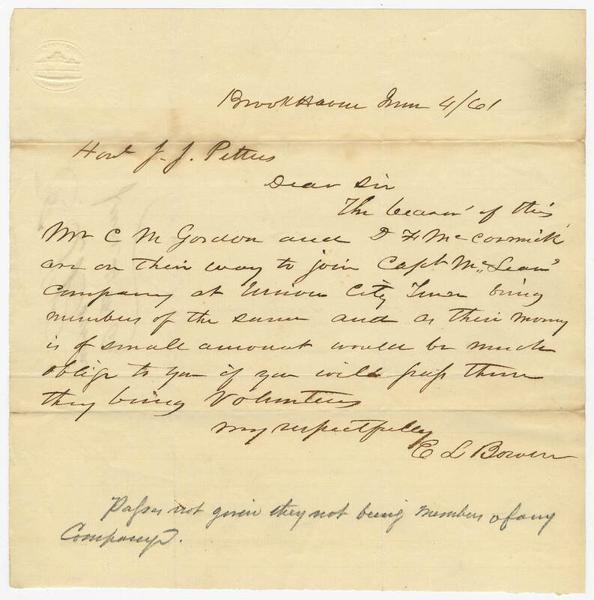 Brookhaven June 4/61
Honl J. J. Pettus
Dear Sir
The bearer of this
Mr C M Gordon and D F McCormick
are on their way to join Capt McLean's
company at Union City Tenn being
members of the same and as their money
is of small amount would be much
oblige to you if you will pass them
they being Volunteers
very respectfully
E L Bowen
Passes not given they not being members of any
Company.